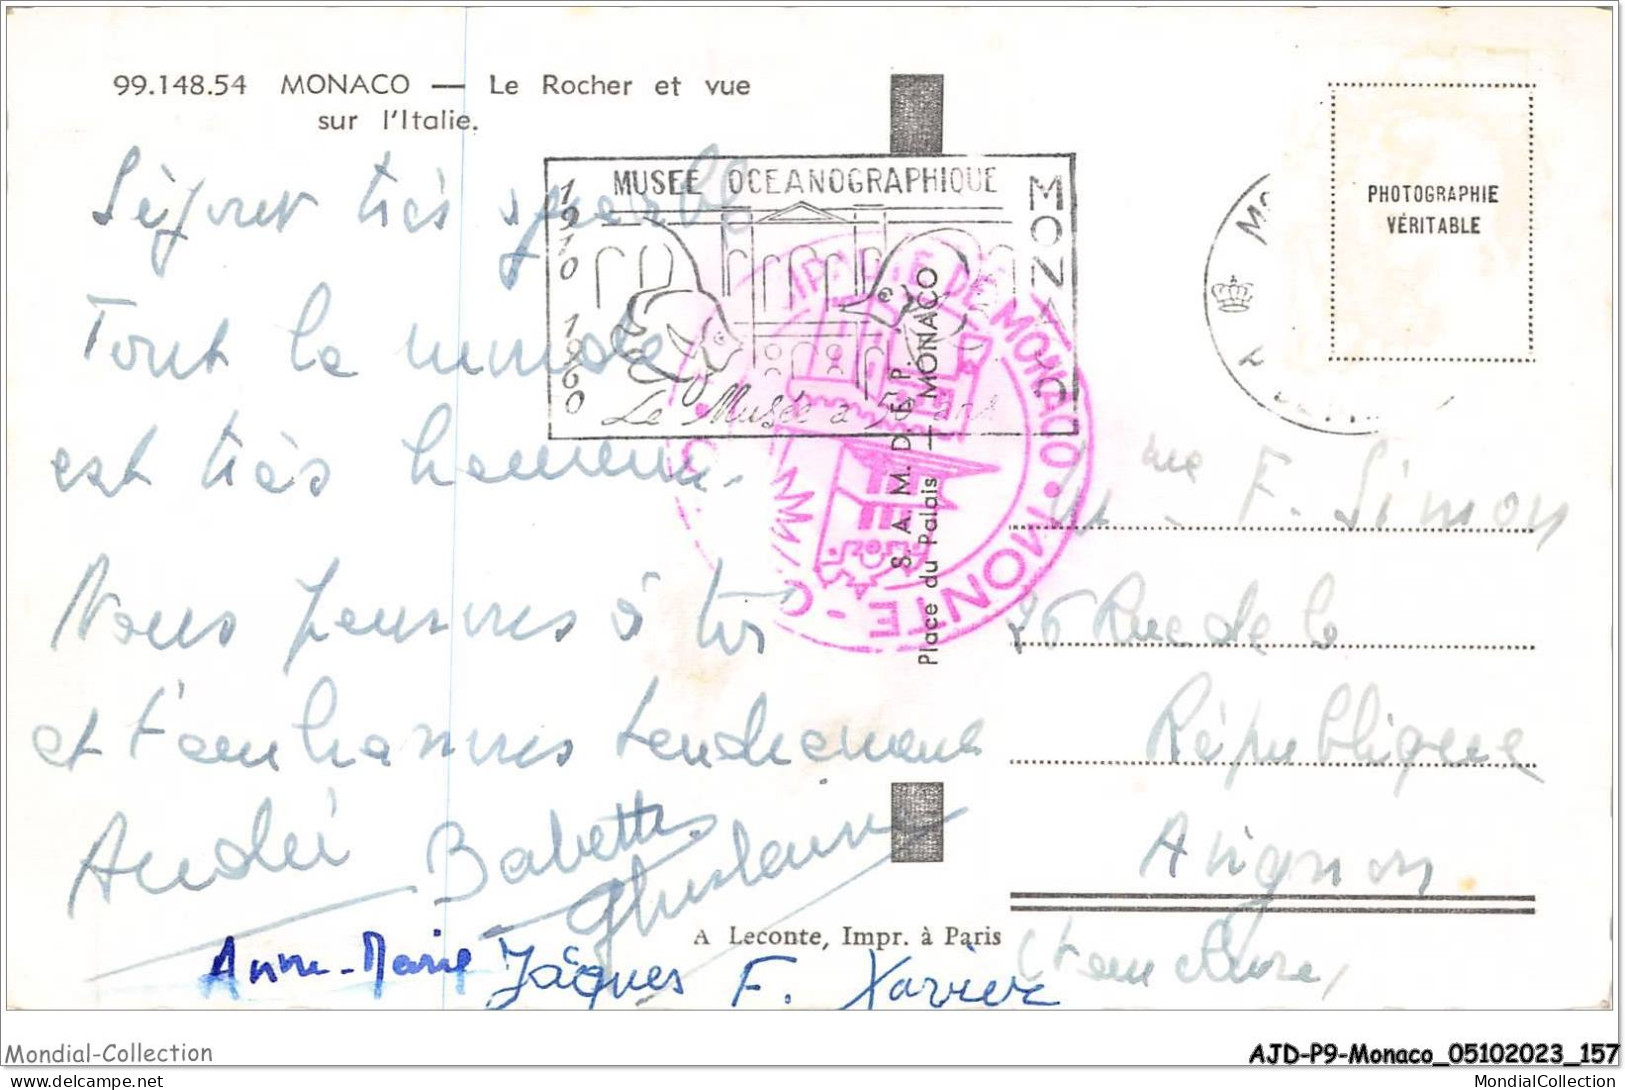 99.148.54 MONACO — Le Rocher et vue
sur l'Italie.
Séjour très agréable
Tout le monde
est très heureux.
Nous pensons à toi
et t'embrassons tendrement
André Babette Ghislaine
Anne-Marie Jacques F. Xavier
MUSEE OCEANOGRAPHIQUE
1910 1960
MONA
Le Musée a 50 ans
DE MONACO • MONTE-C
S. A. M. D. E. P.
Place du Palais — MONACO
A Leconte, Impr. à Paris
PHOTOGRAPHIE
VÉRITABLE
Mme F. Simon
96 Rue de la
République
Avignon
(Vaucluse)
Mondial-Collection
AJD-P9-Monaco_05102023_157
delcampe.net
MondialCollection